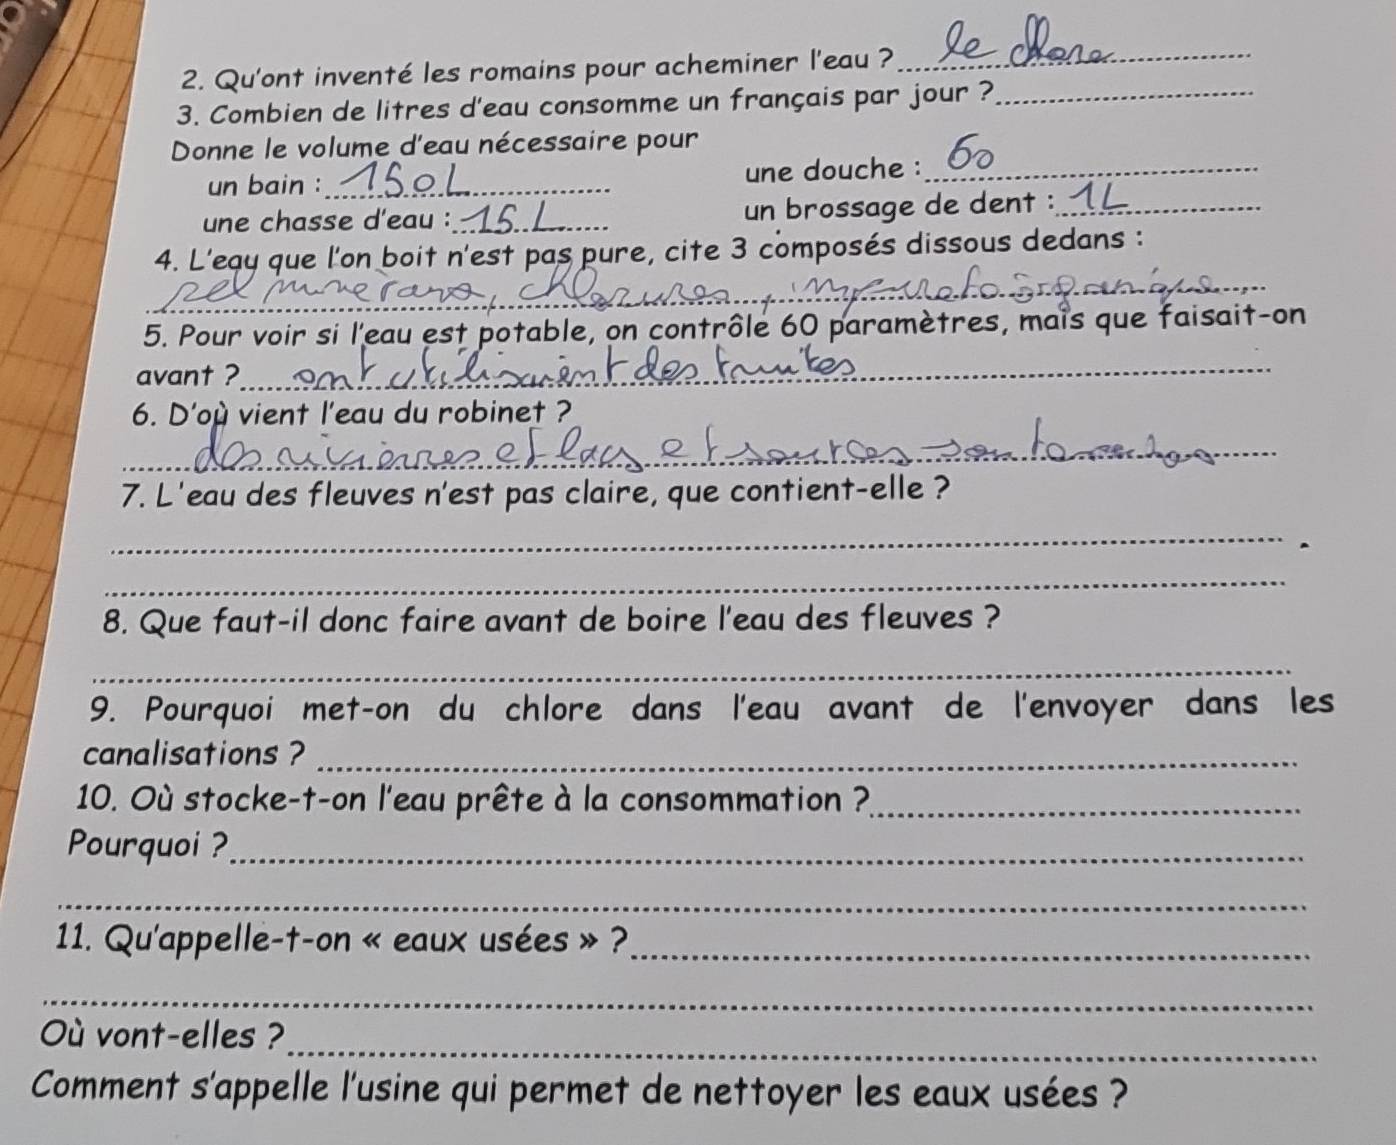 2. Qu'ont inventé les romains pour acheminer l'eau ? le
3. Combien de litres d'eau consomme un français par jour ?
Donne le volume d'eau nécessaire pour
un bain : 150L une douche : 60
une chasse d'eau : 15 L un brossage de dent : 1L
4. L'eau que l'on boit n'est pas pure, cite 3 composés dissous dedans :
sel mineraux, chlorures, organique
5. Pour voir si l'eau est potable, on contrôle 60 paramètres, mais que faisait-on
avant ? ont utilisaient des truites
6. D'où vient l'eau du robinet ?
des rivierres et lacs et sources
7. L'eau des fleuves n'est pas claire, que contient-elle ?
8. Que faut-il donc faire avant de boire l'eau des fleuves ?
9. Pourquoi met-on du chlore dans l'eau avant de l'envoyer dans les
canalisations ?
10. Où stocke-t-on l'eau prête à la consommation ?
Pourquoi ?
11. Qu'appelle-t-on « eaux usées » ?
Où vont-elles ?
Comment s'appelle l'usine qui permet de nettoyer les eaux usées ?